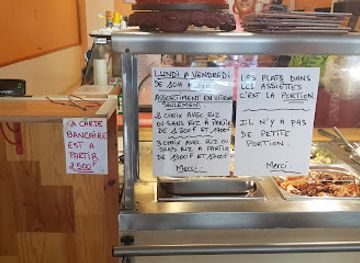 LA CARTE
BANCAIRE
EST A
PARTIR
2500F
LUNDI A VENDREDI
DE 10H
ASSORTIMENT EN VITRINE
SEULEMENT.
2 CHOIX AVEC RIZ
OU SANS RIZ A PARTIR
DE 1200F ET 1700F
3 CHOIX AVEC RIZ OU
SANS RIZ A PARTIR
DE 1500F ET
Merci.
LES PLATS DANS
LES ASSIETTES
C'EST LA PORTION.
IL N'Y A PAS
DE PETITE
PORTION.
Merci